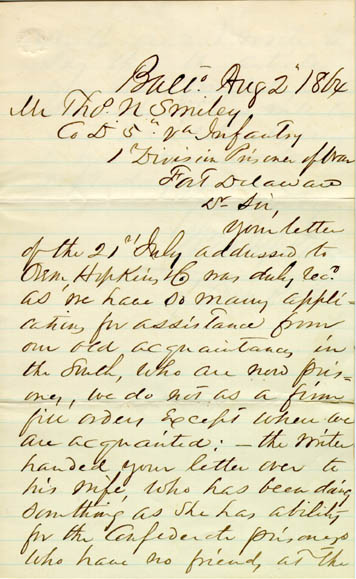 Balto Aug 2d 1864
Mr Thos. N Smiley
Co D 5th Va Infantry
1st Division Prisoner of War
Fort Delaware
Dr Sir,
Your letter
of the 21st July addressed to
Hopkins & Co was duly recd
as we have so many appli-
cations for assistance from
our old acquaintances in
the South, who are now pris-
oners, we do not as a firm
fill orders Except when we
are acquainted; — the writer
handed your letter over to
his wife, who has been doing
something as she has ability
for the Confederate prisoners
who have no friends at the